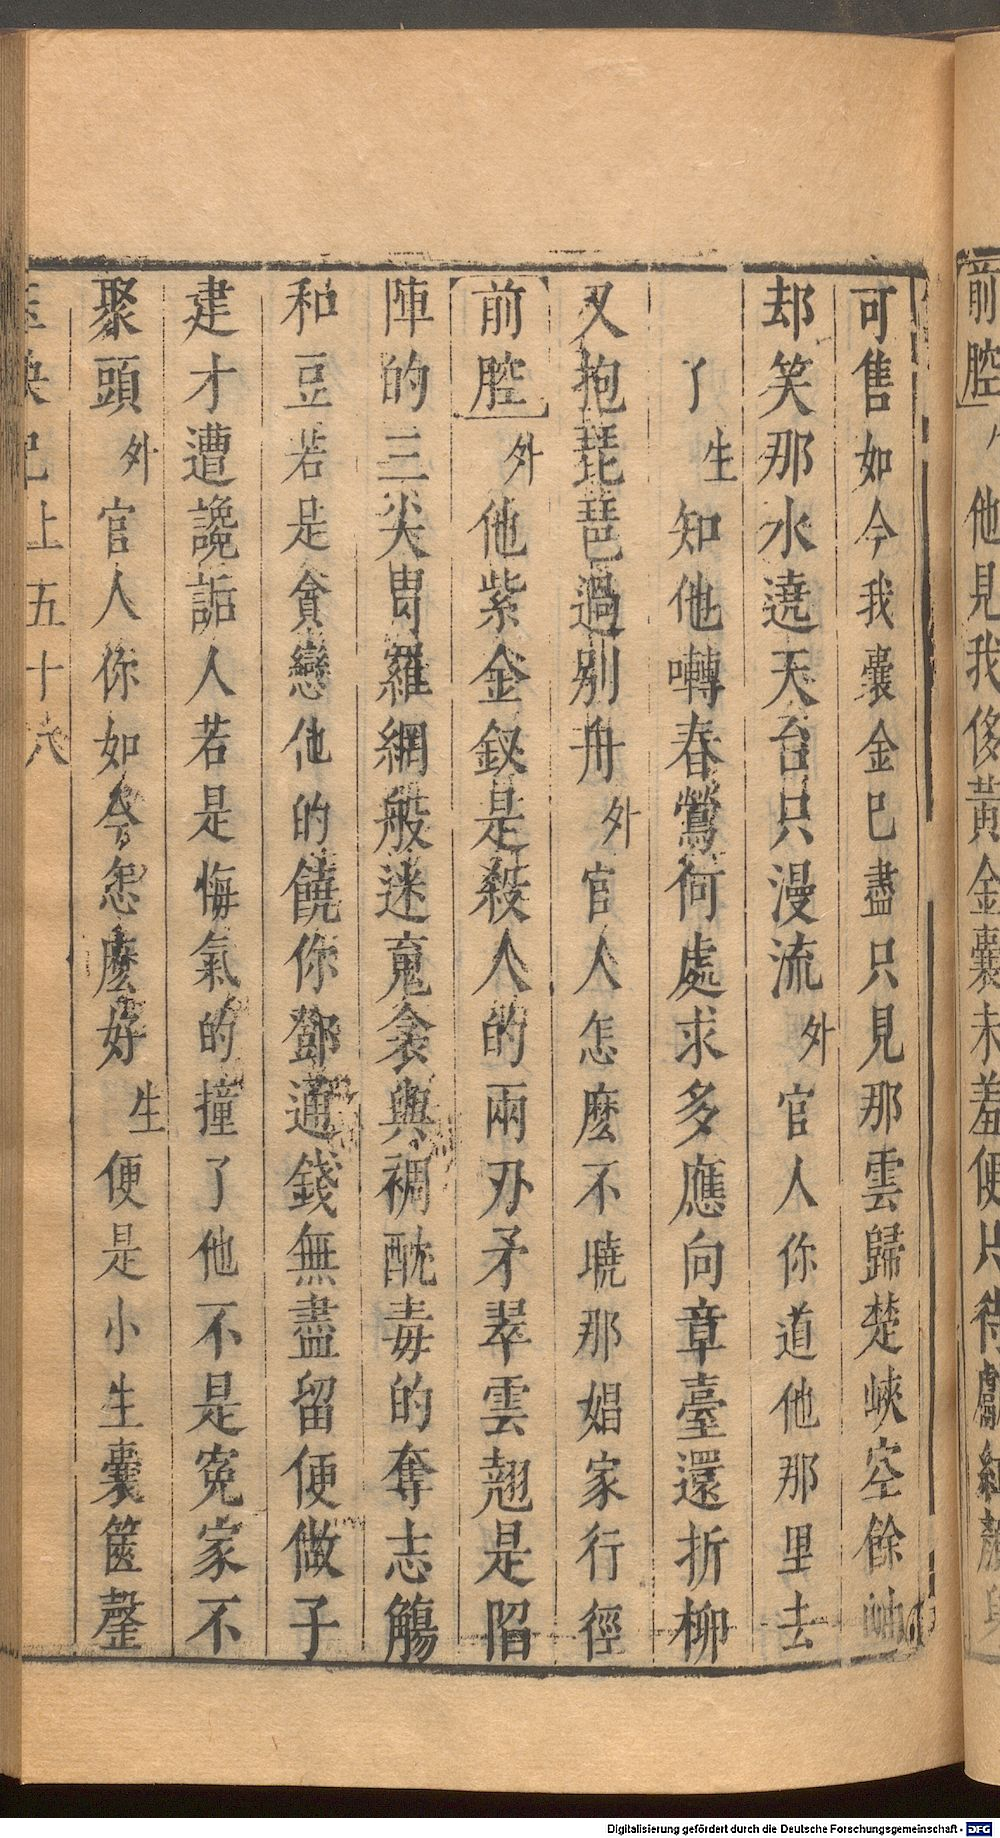 前腔 他見我侈黃金囊未羞便片待獻紅
可售如今我囊金已盡只見那雲歸楚峽空餘岫
却笑那水遶天台只漫流外官人你道他那里去
了生知他囀春鶯何處求多應向章臺還折柳
又抱琵琶過別舟外官人怎麽不曉那娼家行徑
前腔外他紫金釵是殺人的兩刃矛翠雲翹是陷
陣的三尖胄羅網般迷䰟衾與裯酖毒的奪志觴
和豆若是貪戀他的饒你鄧通錢無盡留便做子
建才遭讒詬人若是悔氣的撞了他不是寃家不
聚頭外官人你如今怎麽好生便是小生囊篋罄
記上五十八
Digitalisierung gefördert durch die Deutsche Forschungsgemeinschaft - DFG